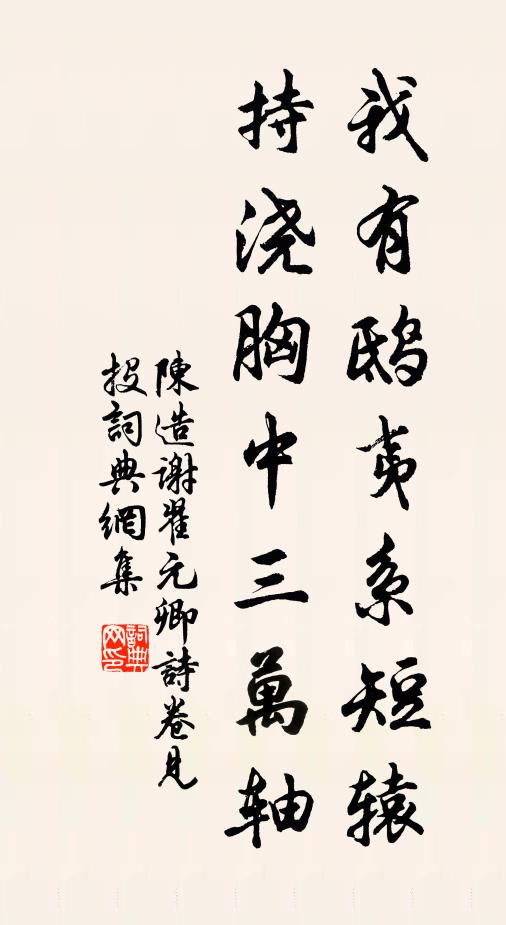 我有鸱夷系短辕
持浇胸中三萬轴
陳造謝翟元卿詩卷見
投詞典網集
詞典网印